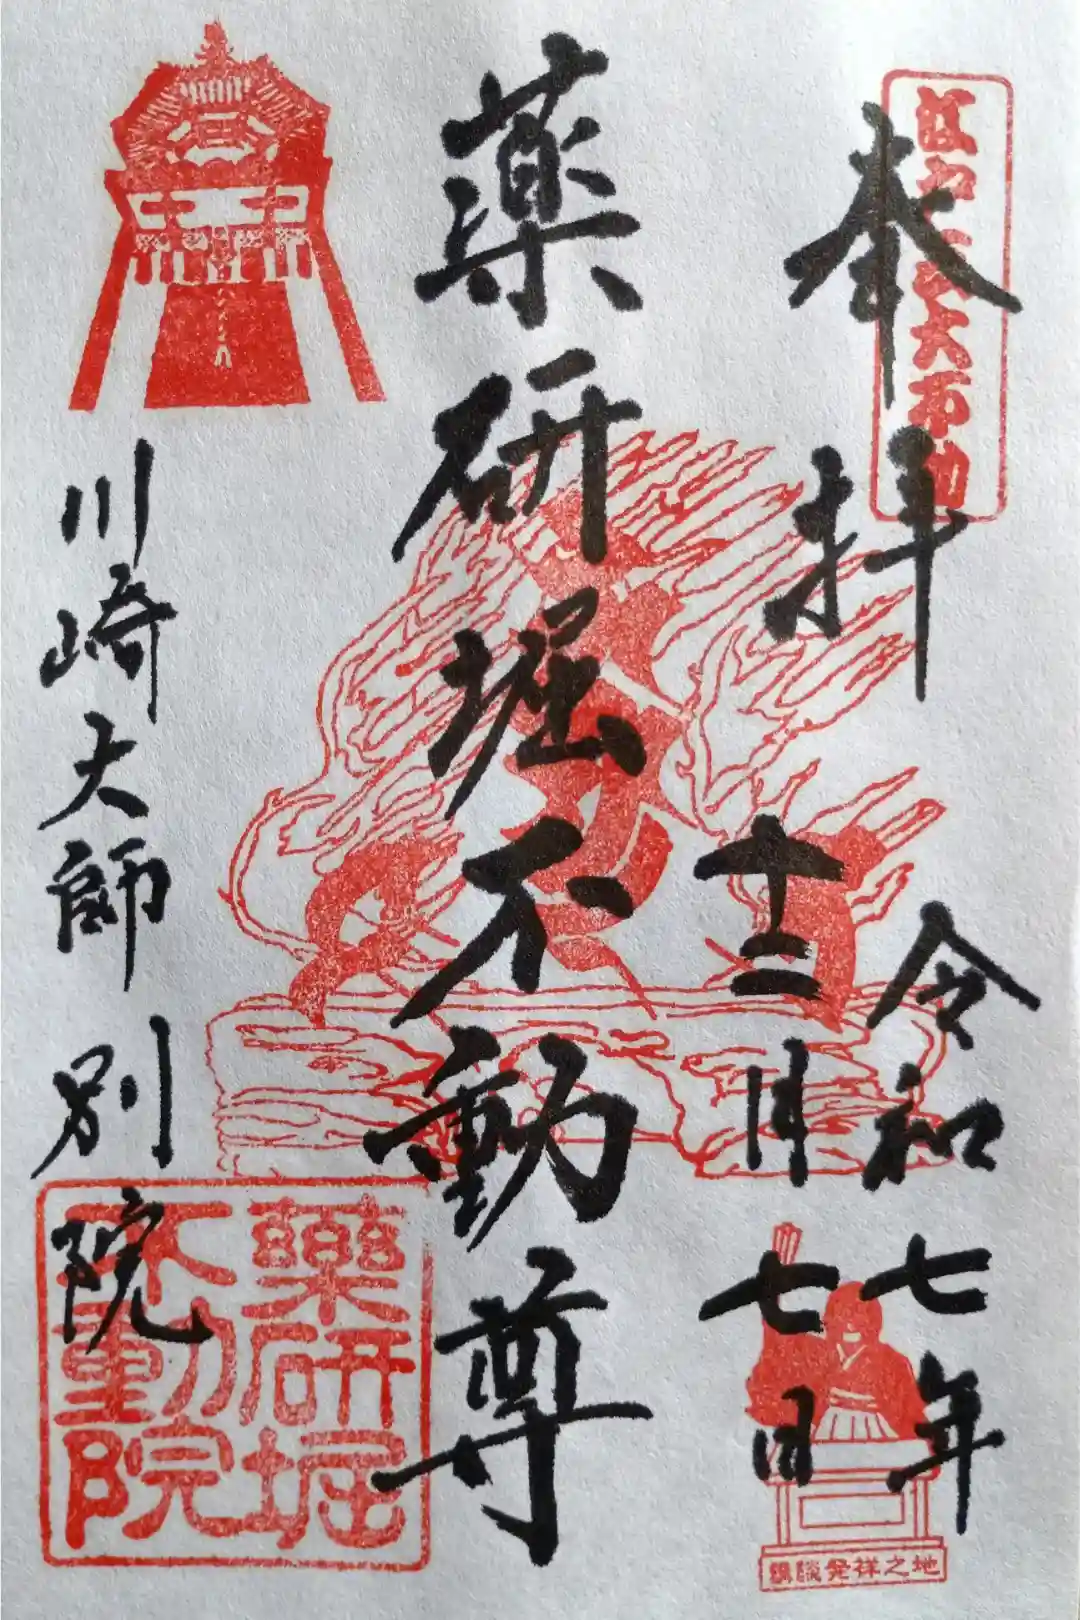 江戸三大不動
奉拝
令和七年
十二月七日
講談発祥之地
薬研堀不動尊
川崎大師別院
薬研堀
不動院